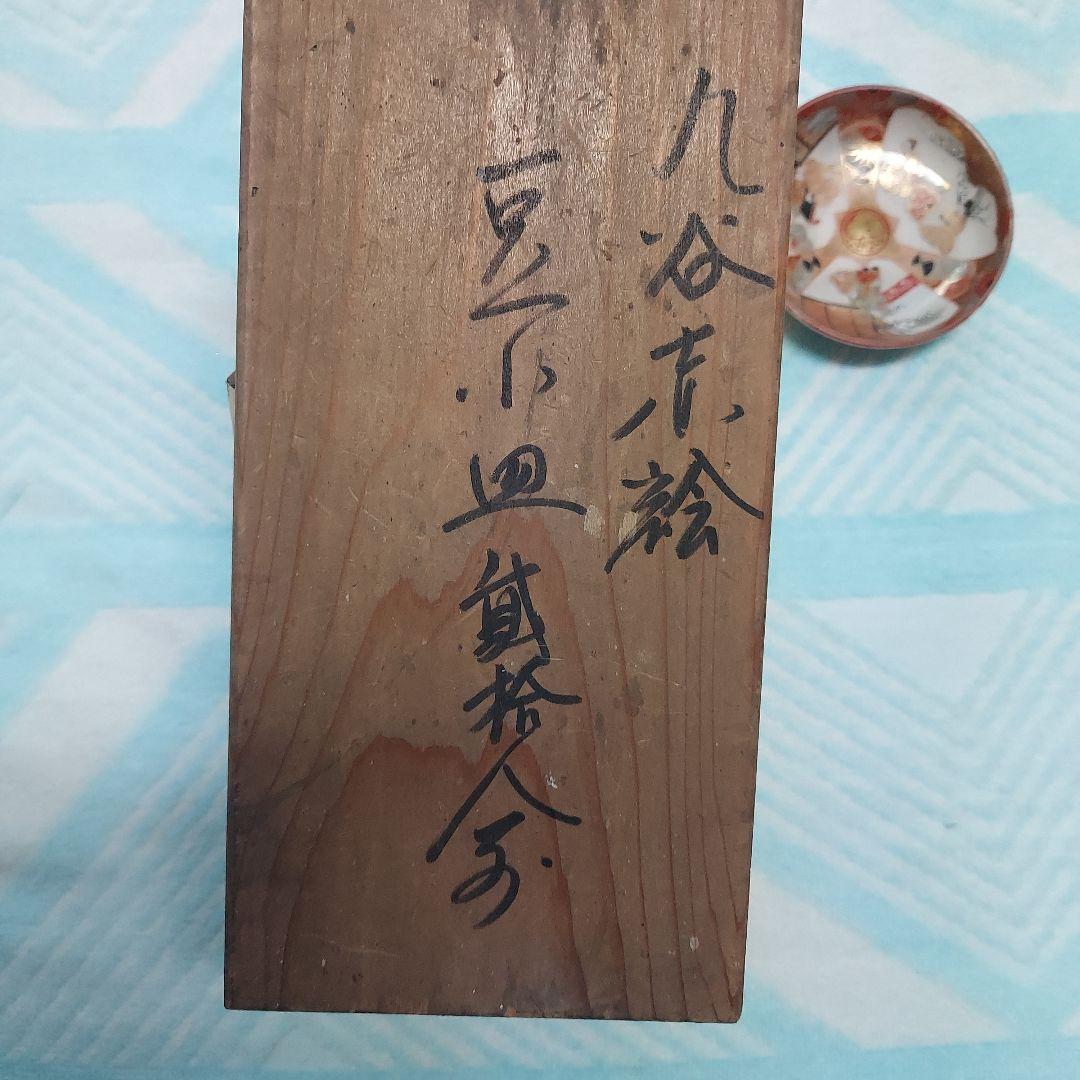 九谷赤絵
皿貳拾人前